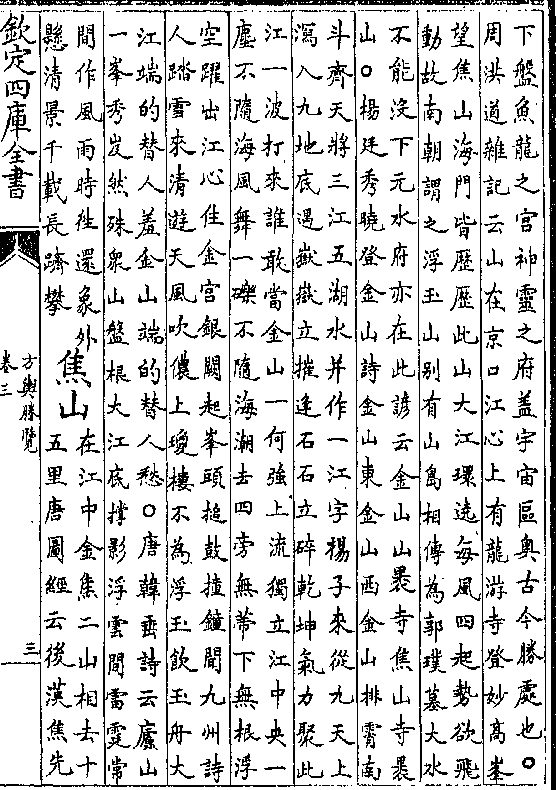 下盤魚龍之宮神靈之府蓋宇宙區奥古今勝處也〇
周洪道雜記云山在京口江心上有龍游寺登妙高峯
望焦山海門皆歴歴此山大江環遶每風四起勢欲飛
動故南朝謂之浮玉山别有山島相傳為郭璞墓大水
不能没下元水府亦在此諺云金山山褁寺焦山寺褁
山〇楊廷秀曉登金山詩金山東金山西金山排霄南
斗齊天將三江五湖水并作一江字楊子來從九天上
瀉入九地底遇嶽嶽立摧逢石石立碎乾坤氣力聚此
江一波打來誰敢當金山一何強上流獨立江中央一
塵不隨海風舞一礫不隨海潮去四旁無蔕下無根浮
空躍出江心住金宫銀闕起峯頭搥鼓撞鐘聞九州詩
人踏雪來清遊天風吹儂上瓊樓不為浮玉飲玉舟大
江端的替人羞金山端的替人愁〇唐韓垂詩云廬山
一峯秀岌然殊衆山盤根大江底撑影浮雲間雷霆常
間作風雨時徃還象外
懸清景千載長躋攀
焦山
在江中金焦二山相去十
五里唐圖經云後漢焦先
欽定四庫全書
方輿勝覽
卷三
三